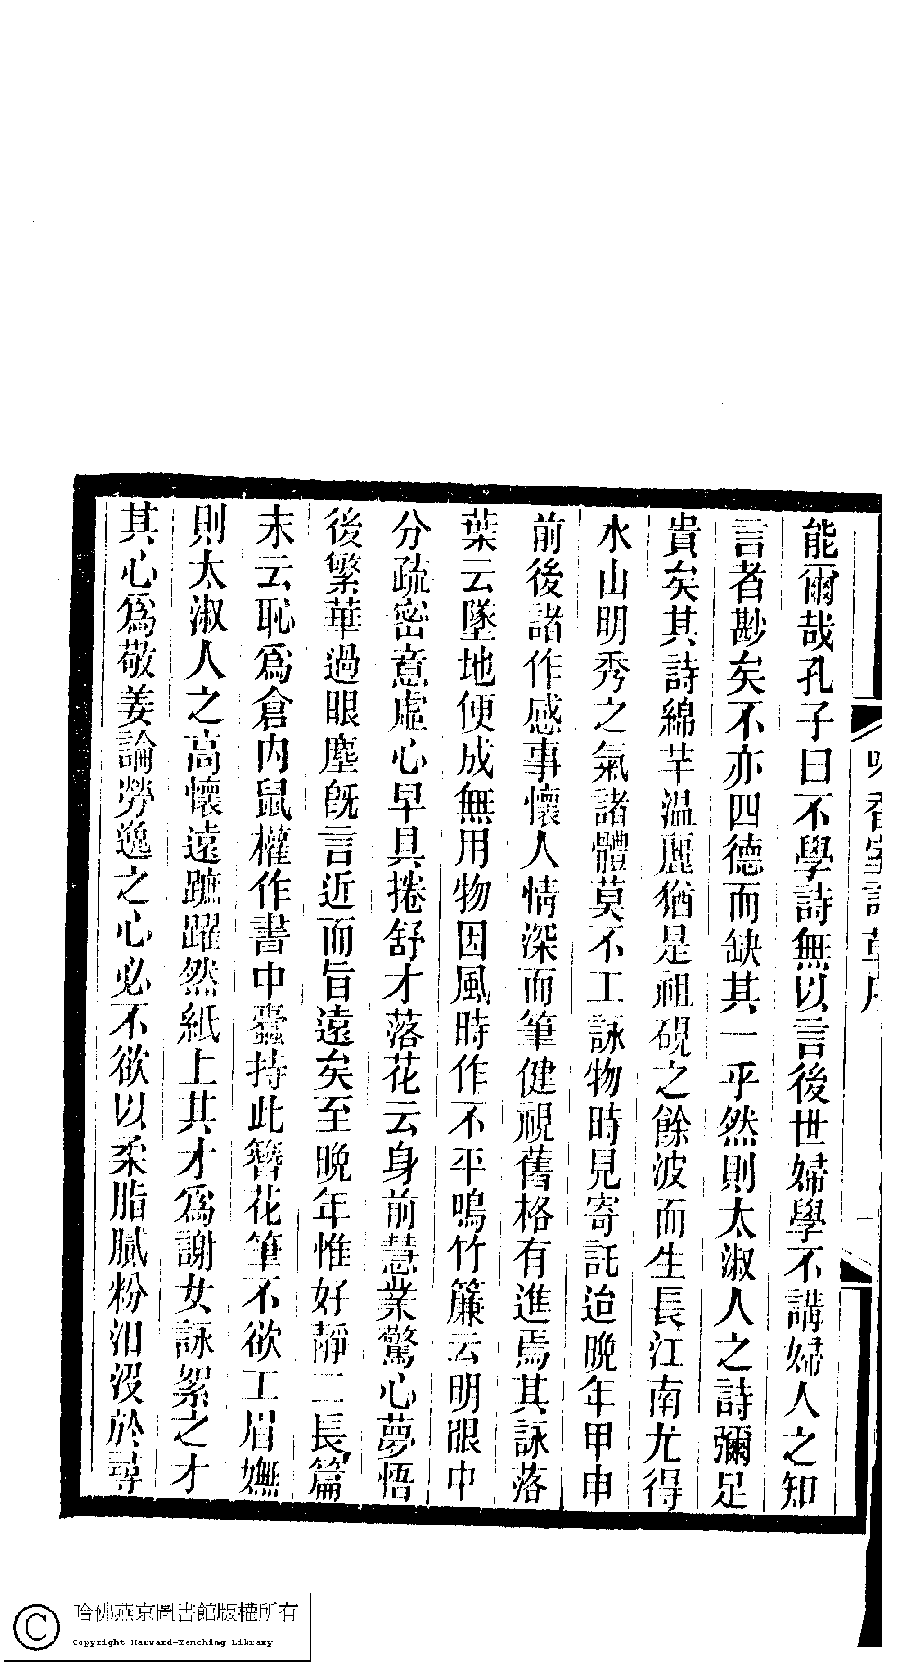 香室詩草序
能爾哉孔子曰不學詩無以言後世婦學不講婦人之知
言者尠矣不亦四德而缺其一乎然則太淑人之詩彌足
貴矣其詩綿芊溫麗猶是祖硯之餘波而生長江南尤得
水山明秀之氣諸體莫不工詠物時見寄託迨晚年甲申
前後諸作感事懷人情深而筆健視舊格有進焉其詠落
葉云墜地便成無用物因風時作不平鳴竹簾云明眼中
分疏密意虛心早具捲舒才落花云身前慧業驚心夢悟
後繁華過眼塵旣言近而旨遠矣至晚年惟好靜二長篇
末云恥爲倉內鼠權作書中蠹持此簪花筆不欲工眉嫵
則太淑人之高懷遠蹠躍然紙上其才爲謝女詠絮之才
其心爲敬姜論勞逸之心必不欲以柔脂膩粉汨沒於尋
哈佛燕京圖書館版權所有
Copyright Harvard-Yenching Library